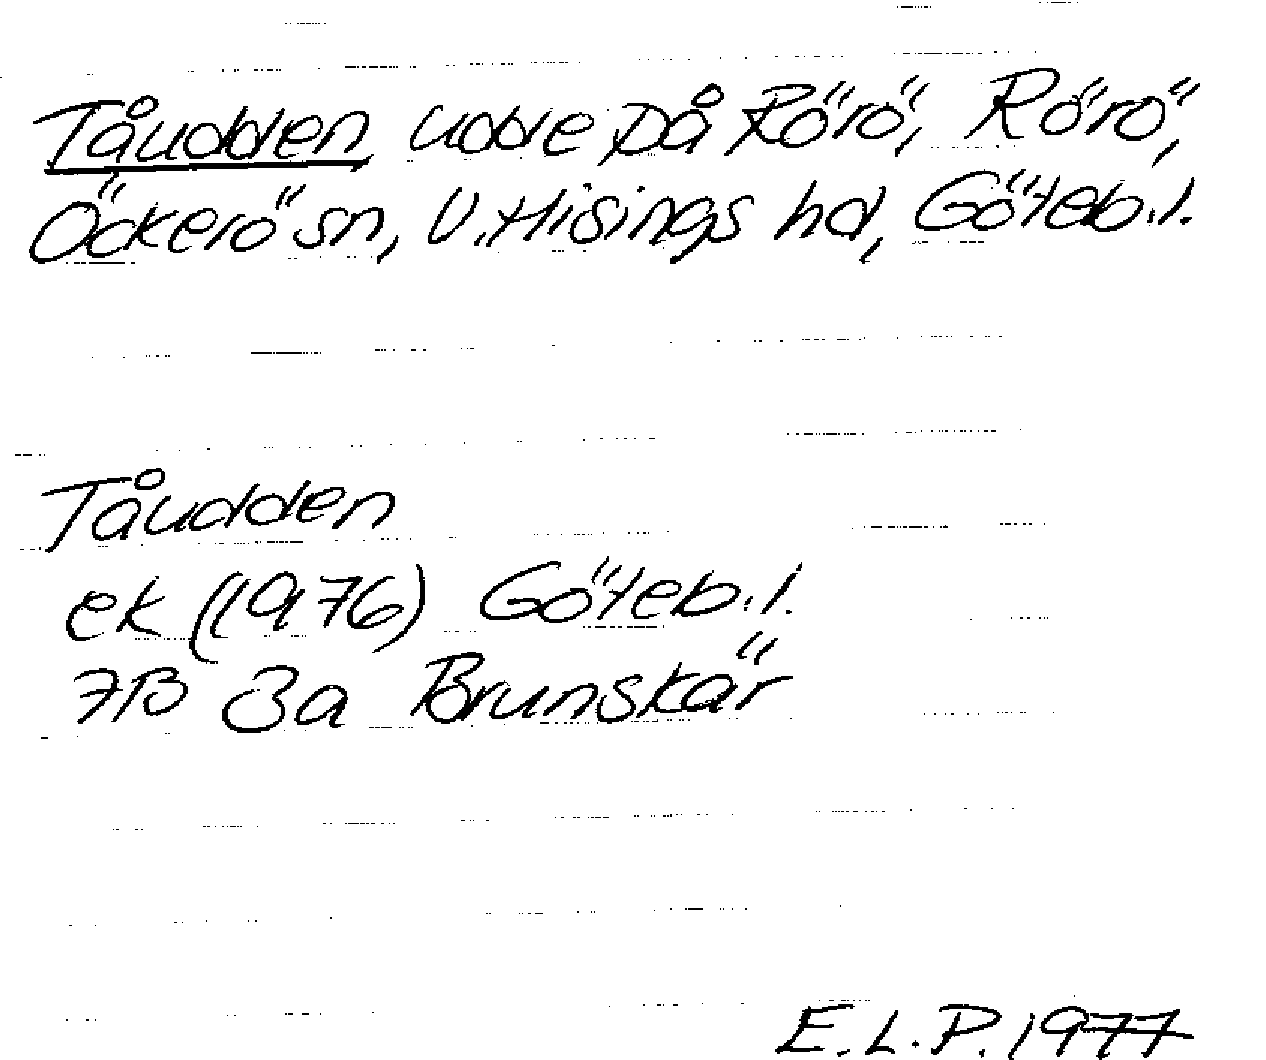 Tåudden, udde på Rörö, Rörö,
Öckerö sn, V. Hisings hd, Göteb. l.
Tåudden
ek (1976) Göteb. l.
7B 3a Brunskär
E. L. P. 1977